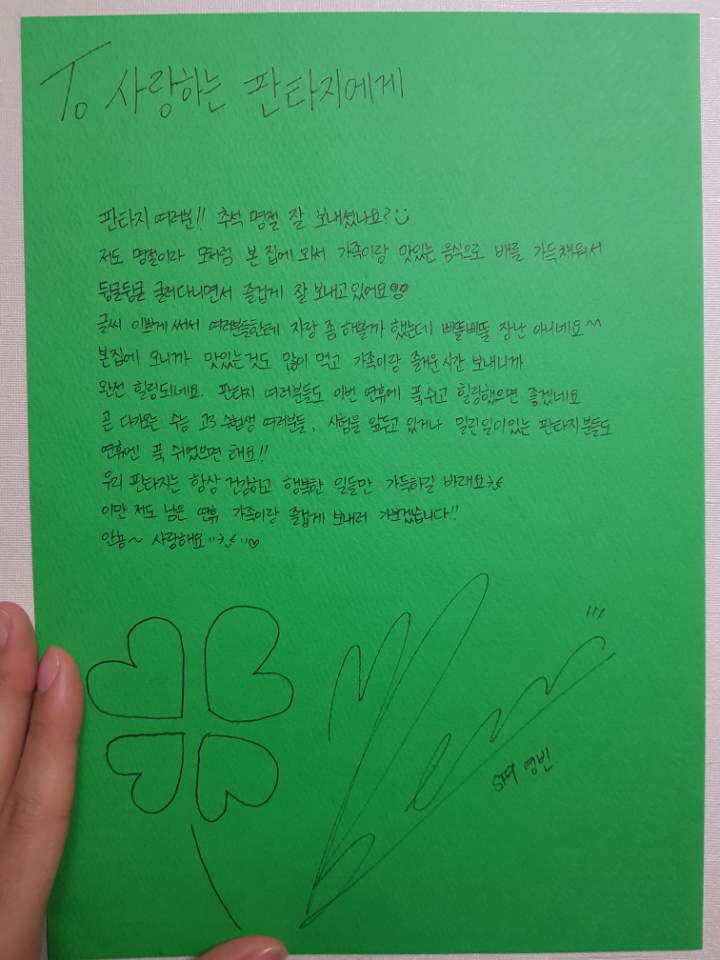 To 사랑하는 판타지에게
판타지 여러분!! 추석 명절 잘 보내셨나요?
저도 명절이라 모처럼 본 집에 와서 가족이랑 맛있는 음식으로 배를 가득채워서
뒹굴뒹굴 굴러다니면서 즐겁게 잘 보내고있어요
글씨 이쁘게 써서 여러분들한테 자랑 좀 해볼까 했는데 삐뚤삐뚤 장난 아니네요^^
본집에 오니까 맛있는것도 많이 먹고 가족이랑 즐거운시간 보내니까
완전 힐링되네요. 판타지 여러분들도 이번 연휴에 푹쉬고 힐링했으면 좋겠네요
곧 다가오는 수능 고3 수험생 여러분들, 시험을 앞두고 있거나 밀린일이있는 판타지분들도
연휴엔 푹 쉬었으면 해요!!
우리 판타지는 항상 건강하고 행복한 일들만 가득하길 바래요
이만 저도 남은 연휴 가족이랑 즐겁게 보내러 가보겠습니다!!
안뇽~ 사랑해요
영빈